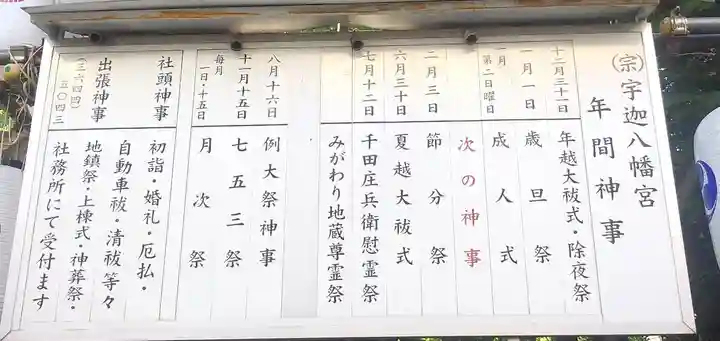 (宗)宇迦八幡宮
年間神事
十二月三十一日 年越大祓式・除夜祭
一月一日 歳旦祭
一月第二日曜日 成人式
次の神事
二月三日 節分祭
六月三十日 夏越大祓式
七月十二日 千田庄兵衛慰霊祭
みがわり地蔵尊霊祭
八月十六日 例大祭神事
十一月十五日 七五三祭
毎月一日・十五日 月次祭
社頭神事 初詣・婚礼・厄払・
自動車祓・清祓等々
出張神事 地鎮祭・上棟式・神葬祭・
(三六四四)五〇四三 社務所にて受付ます